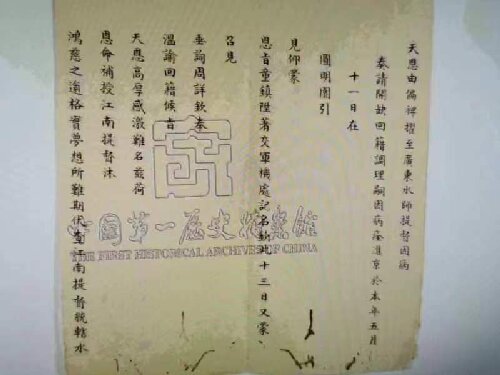 天恩由偏裨擢至廣東水師提督因病
奏請開缺回籍調理嗣因病痊進京於本年五月
十一日在
圓明園引
見仰蒙
恩旨童鎮陞著交軍機處記名欽此十三日又蒙
召見
垂詢周詳欽奉
溫諭回籍候旨
天恩高厚感激難名茲荷
恩命補授江南提督沐
鴻慈之逾格實夢想所難期伏查江南提督統轄水
中國第一历史档案馆
THE FIRST HISTORICAL ARCHIVES OF CHINA